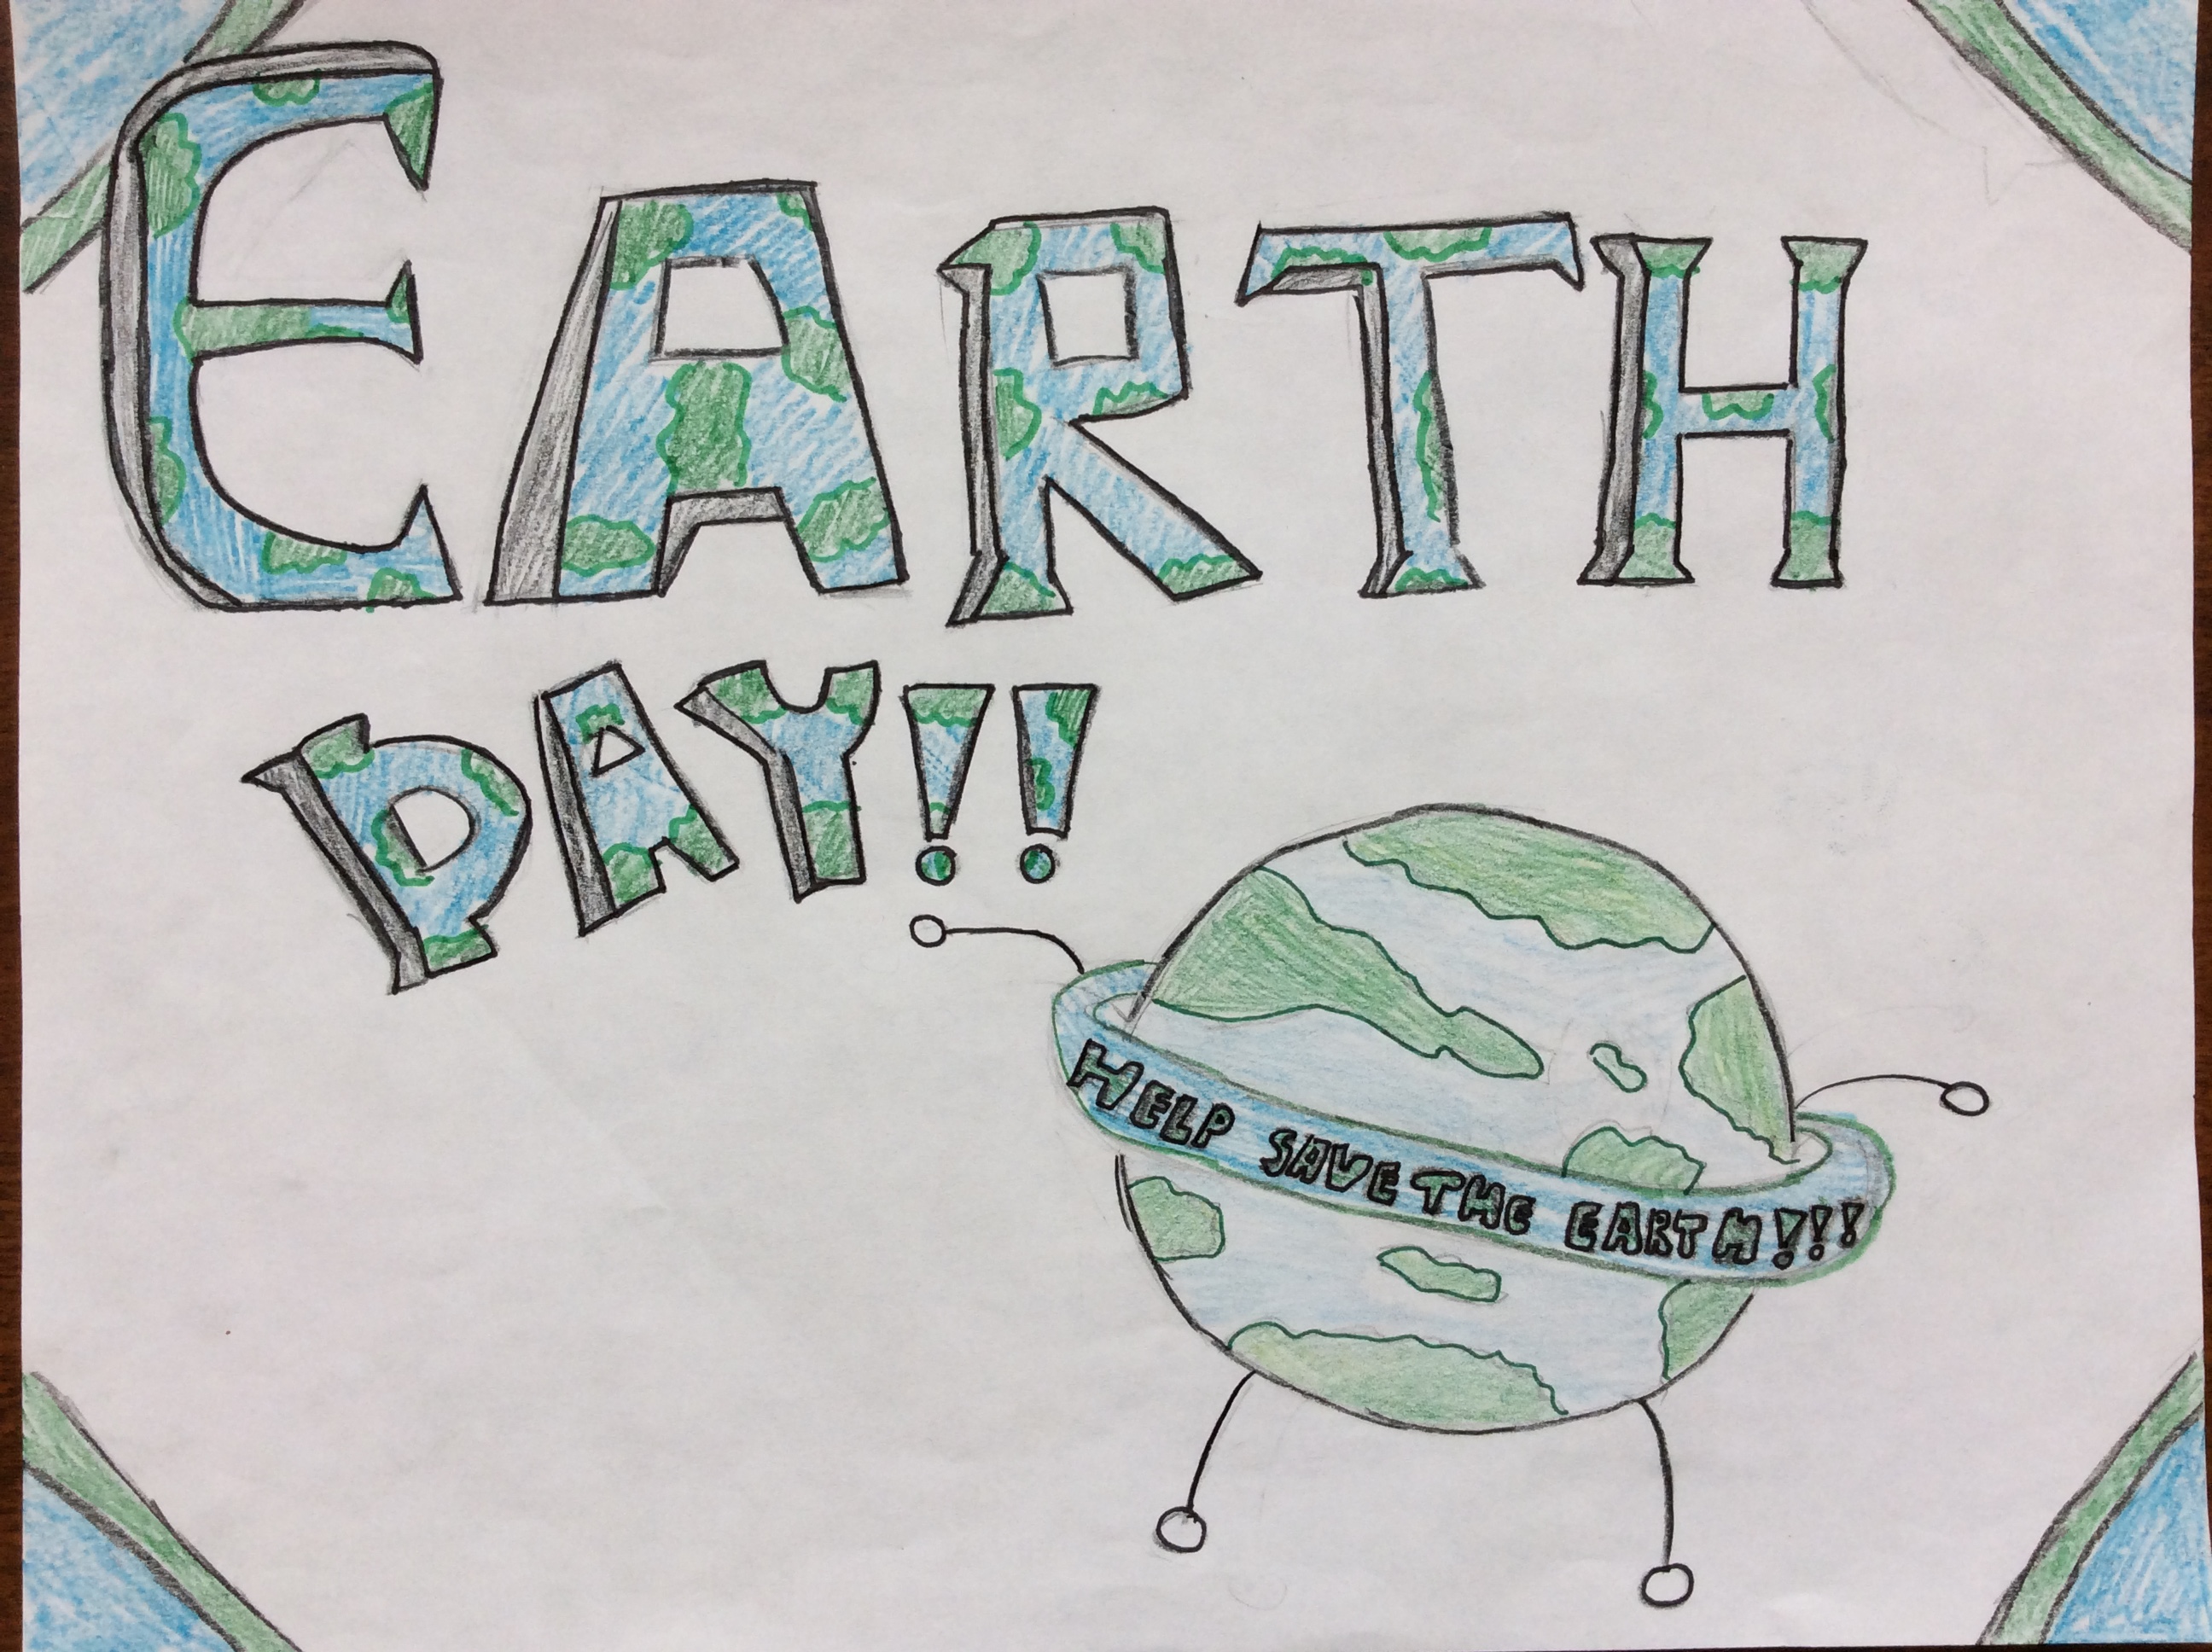 EARTH
DAY!!
HELP SAVE THE EARTH!!!